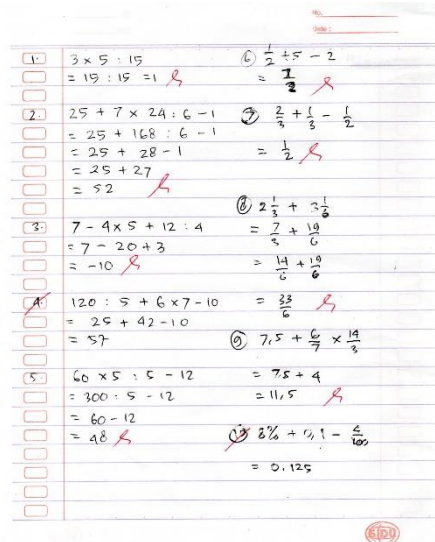 No.
Date :
1. 3 x 5 : 15
= 15 : 15 = 1
2. 25 + 7 x 24 : 6 - 1
= 25 + 168 : 6 - 1
= 25 + 28 - 1
= 25 + 27
= 52
3. 7 - 4 x 5 + 12 : 4
= 7 - 20 + 3
= -10
4. 120 : 5 + 6 x 7 - 10
= 25 + 42 - 10
= 57
5. 60 x 5 : 5 - 12
= 300 : 5 - 12
= 60 - 12
= 48
6 1/2 + 5 - 2
= 7/2
7 2/3 + 1/3 - 1/2
= 1/2
8 2 1/3 + 3 1/6
= 7/3 + 19/6
= 14/6 + 19/6
= 33/6
9 7,5 + 6/7 x 14/3
= 7,5 + 4
= 11,5
10 8% + 0,1 - 4/100
= 0,125
SIDU